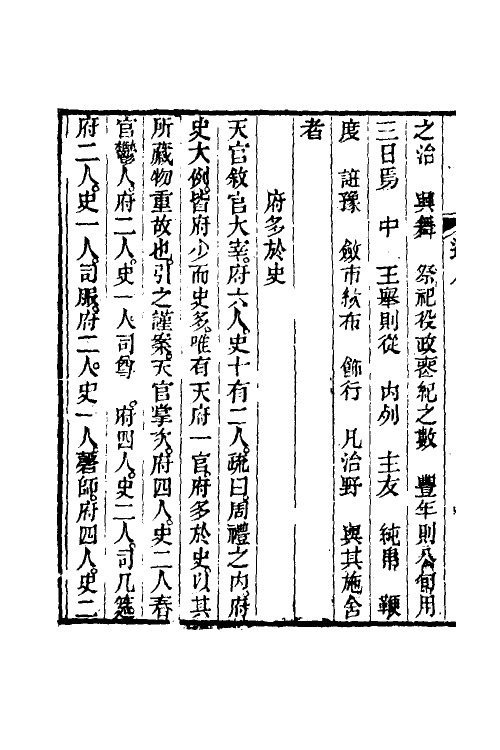 之治　與舞　祭祀役政喪紀之數　豐年則公旬用
三日焉　中　王舉則從　內列　主友　純帛　鞭
度　誑豫　斂市絘布　飾行　凡治野　與其施舍
者
府多於史
天官敘官大宰府六人史十有二人疏曰周禮之內府
史大例皆府少而史多唯有天府一官府多於史以其
所藏物重故也引之謹案天官掌次府四人史二人春
官鬱人府二人史一人司尊　府四人史二人司几筵
府二人史一人司服府二人史一人磬師府四人史二